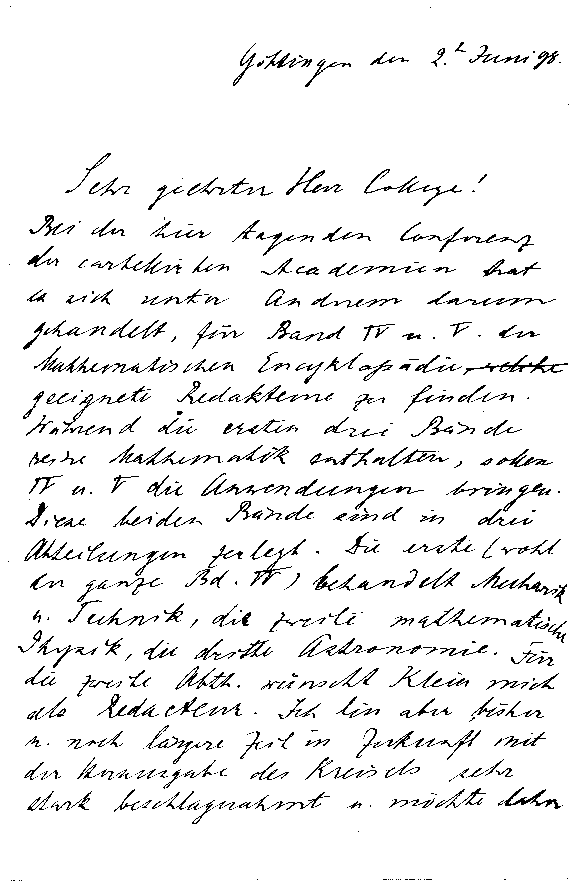 Göttingen den 2.t Juni 98.
Sehr geehrter Herr College!
Bei der hier tagenden Conferenz
der cartellirten Academien hat
es sich unter Anderem darum
gehandelt, für Band IV u. V. der
Mathematischen Encyklopädie, welche
geeignete Redakteure zu finden.
Während die ersten drei Bände
reine Mathematik enthalten, sollen
IV u. V die Anwendungen bringen.
Diese beiden Bände sind in drei
Abteilungen zerlegt. Die erste (wohl
der ganze Bd. IV) behandelt Mechanik
u. Technik, die zweite mathematische
Physik, die dritte Astronomie. Für
die zweite Abth. wünscht Klein mich
als Redacteur. Ich bin aber bisher
u. noch längere Zeit in Zukunft mit
der Herausgabe des Kreisels sehr
stark beschlagnahmt u. möchte daher